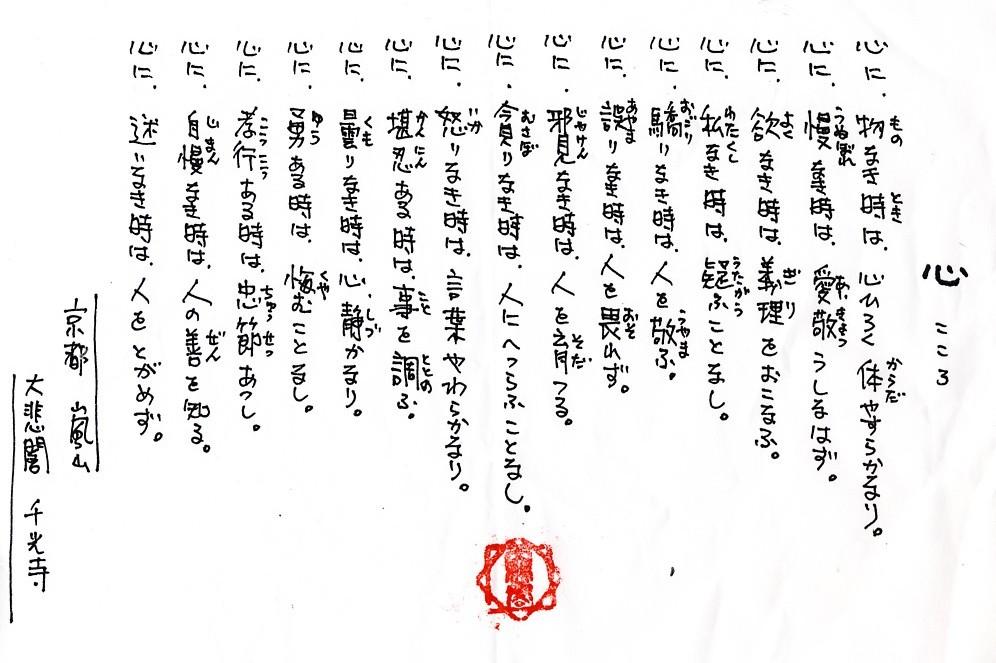 心 こころ
心に、物なき時は、心ひろく体やすらかなり。
もの とき からだ
心に、慢なき時は、愛敬うしなはず。
うぬぼれ あいきょう
心に、欲なき時は、義理をおこなふ。
よく ぎり
心に、私なき時は、疑ふことなし。
わたくし うたがう
心に、驕りなき時は、人を敬ふ。
おごり うやま
心に、誤りなき時は、人を畏れず。
あやま おそ
心に、邪見なき時は、人を育つる。
じゃけん そだ
心に、貪りなき時は、人にへつらふことなし。
むさぼ
心に、怒りなき時は、言葉やわらかなり。
いか
心に、堪忍ある時は、事を調ふ。
かんにん こと ととの
心に、曇りなき時は、心、静かなり。
くも しづ
心に、勇ある時は、悔むことなし。
ゆう くや
心に、孝行ある時は、忠節あつし。
こうこう ちゅうせつ
心に、自慢なき時は、人の善を知る。
じまん ぜん
心に、迷いなき時は、人をとがめず。
京都 嵐山
大悲閣 千光寺